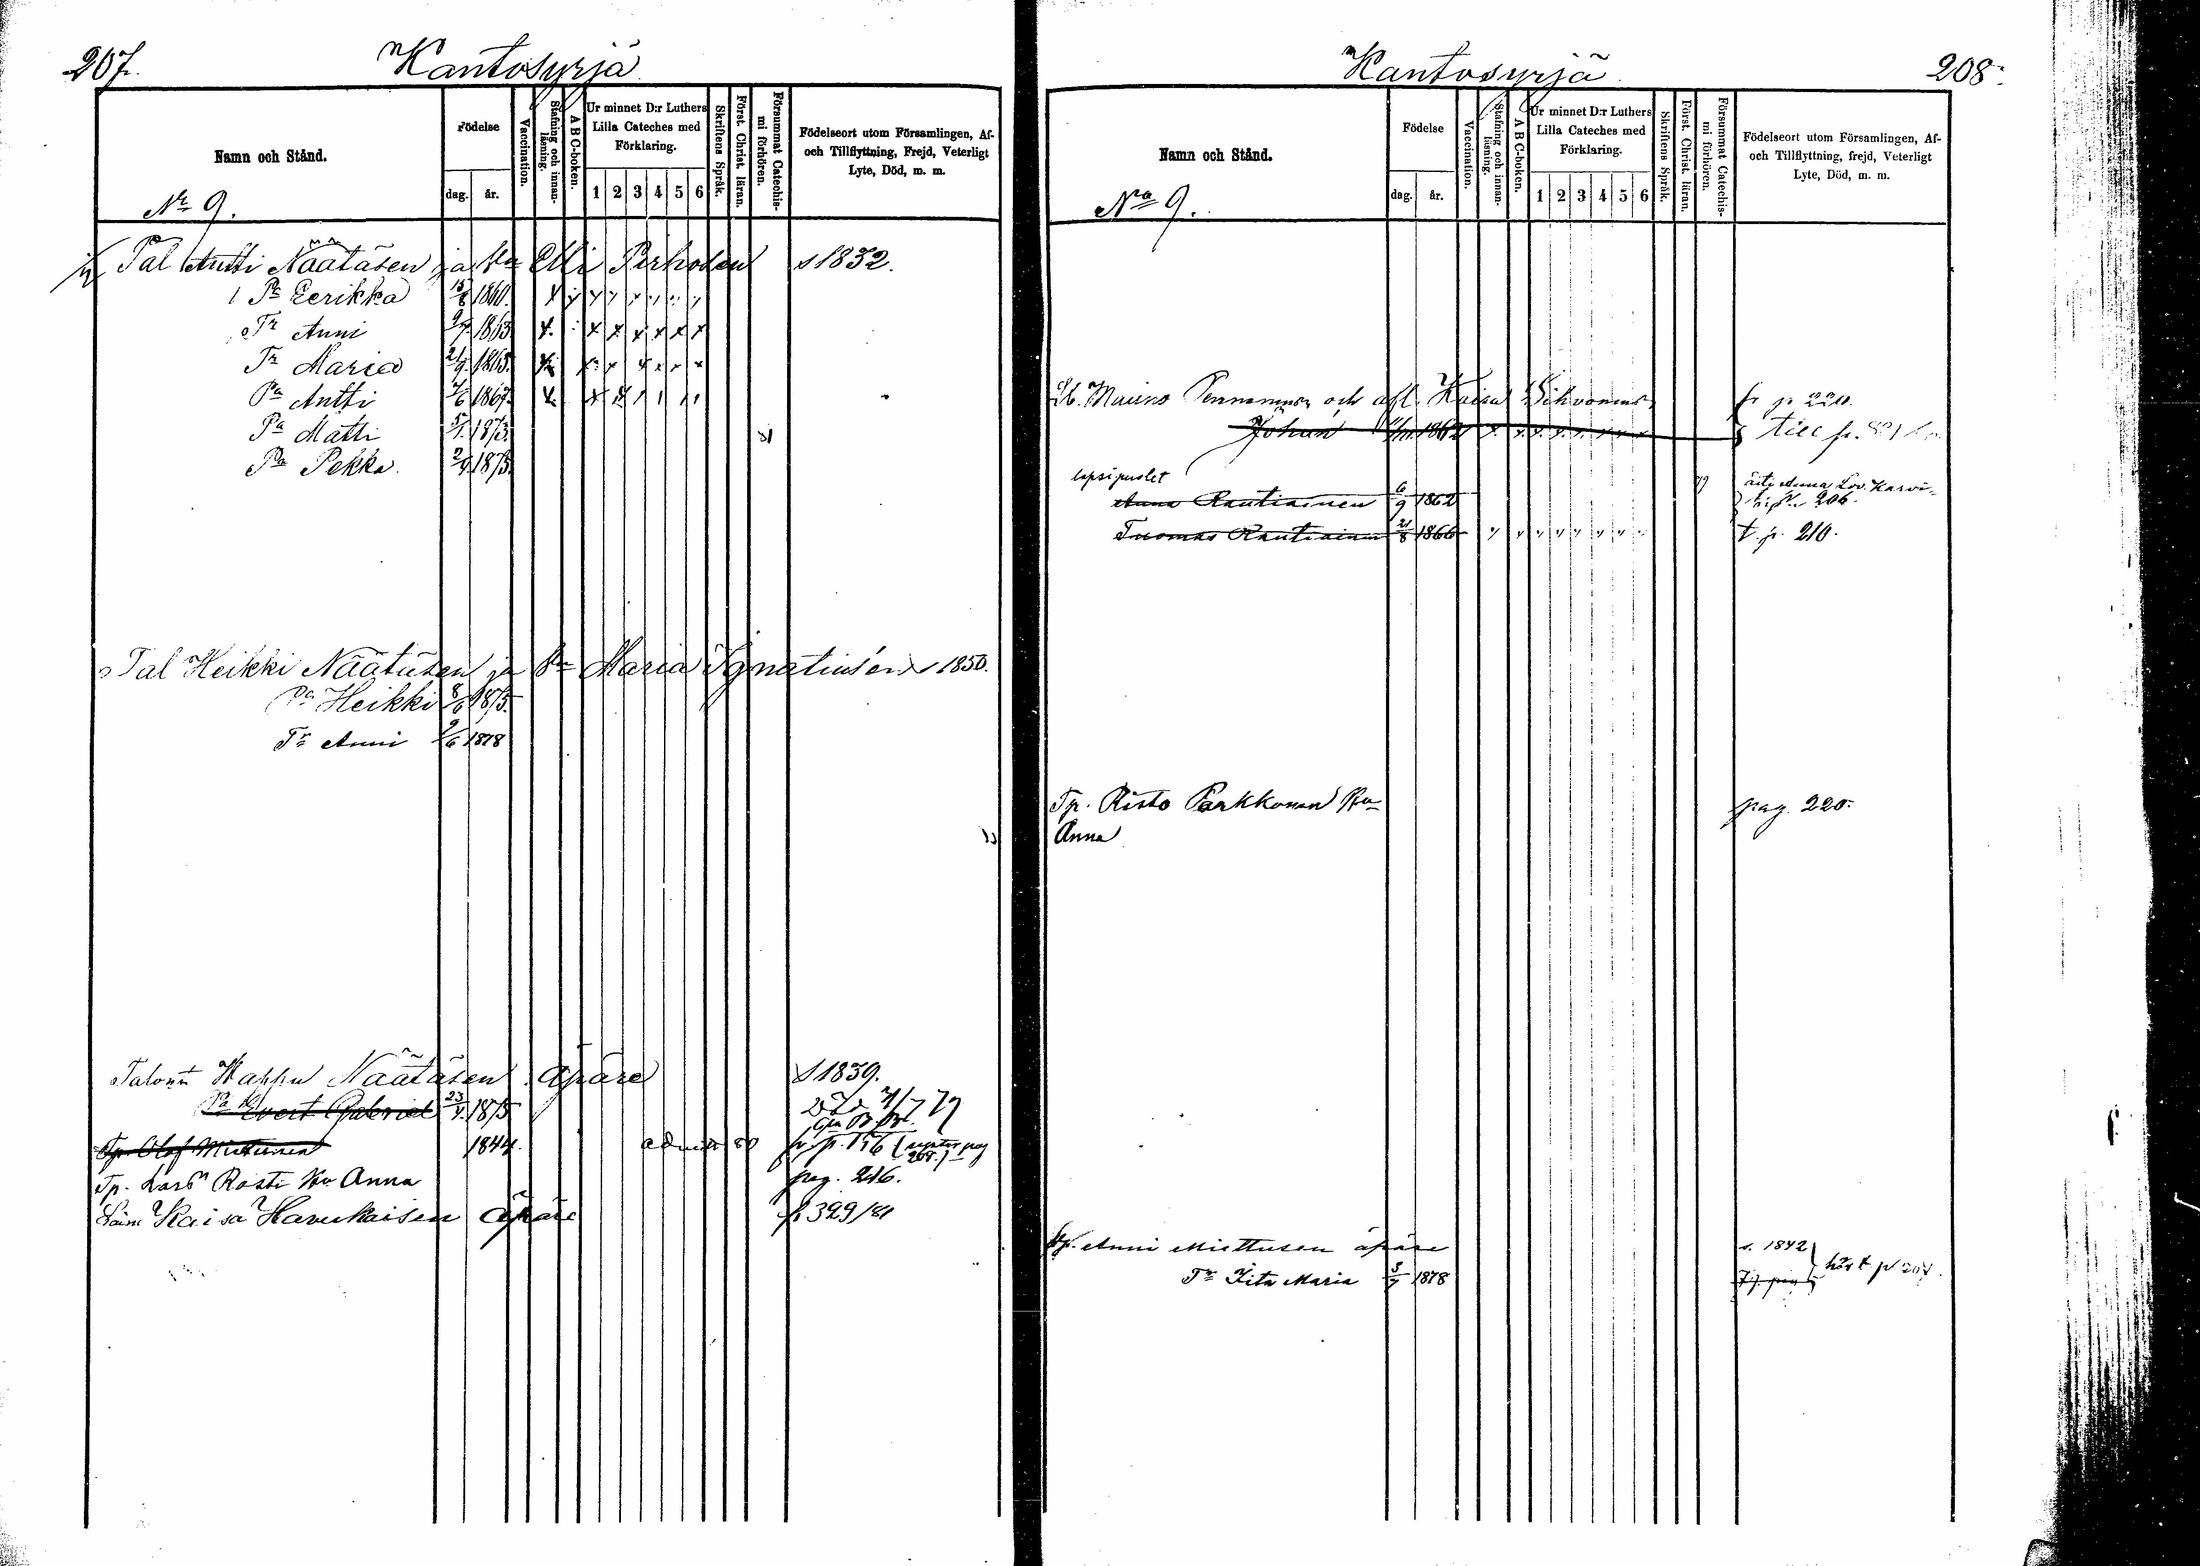 207.
Kantosyrjä
Namn och Stånd.
Födelse
dag.
år.
Vaccination.
Stafning och innan-läsning.
A B C-boken.
Ur minnet D:r Luthers
Lilla Cateches med
Förklaring.
1 2 3 4 5 6
Skriftens Språk.
Först. Christ. läran.
Försummat Catechis-mi förhören.
Födelseort utom Församlingen, Af-
och Tillflyttning, Frejd, Veterligt
Lyte, Död, m. m.
No 9.
Tal Antti Näätäsen ja Va Elli Pirhosen s 1832.
Pr Eerikka 15/8 1860.
Tr Anni 1863
Tr Maria 1865.
Pa Antti 1867.
Pa Matti 1873.
Pa Pekka. 1875.
Tal Heikki Näätäsen ja Va Maria Ignatiusen s 1850.
Pa Heikki 1875.
Tr Anni 1878
Näätäsen äpäre s 1839.
Pa Evert Gabriel 23/4 1875
Tp. Olof Miettinen 1844. fr. p. 156
Tp. Lars Rosti Hu Anna pag. 216.
Kaisa Havukaisen äpäre fr 329/81
Kantosyrjä
208.
Namn och Stånd.
Födelse
dag.
år.
Vaccination.
Stafning och innan-läsning.
A B C-boken.
Ur minnet D:r Luthers
Lilla Cateches med
Förklaring.
1 2 3 4 5 6
Skriftens Språk.
Först. Christ. läran.
Försummat Catechis-mi förhören.
Födelseort utom Församlingen, Af-
och Tillflyttning, frejd, Veterligt
Lyte, Död, m. m.
No 9.
Mauno Pennanens och afl. Kaisa Sihvonens fr p 220.
Johan 1862 till p.
lapsipuolet
Anna Rautiainen 6/9 1862 äiti Anna Lov. Karvi-
206.
Tuomas Rautiainen 21/8 1866 t. p. 210.
Tp. Risto Parkkonen Hu pag. 220.
Anna
Anni Miettusen äpäre s. 1842
Tr Iita Maria 3/7 1878